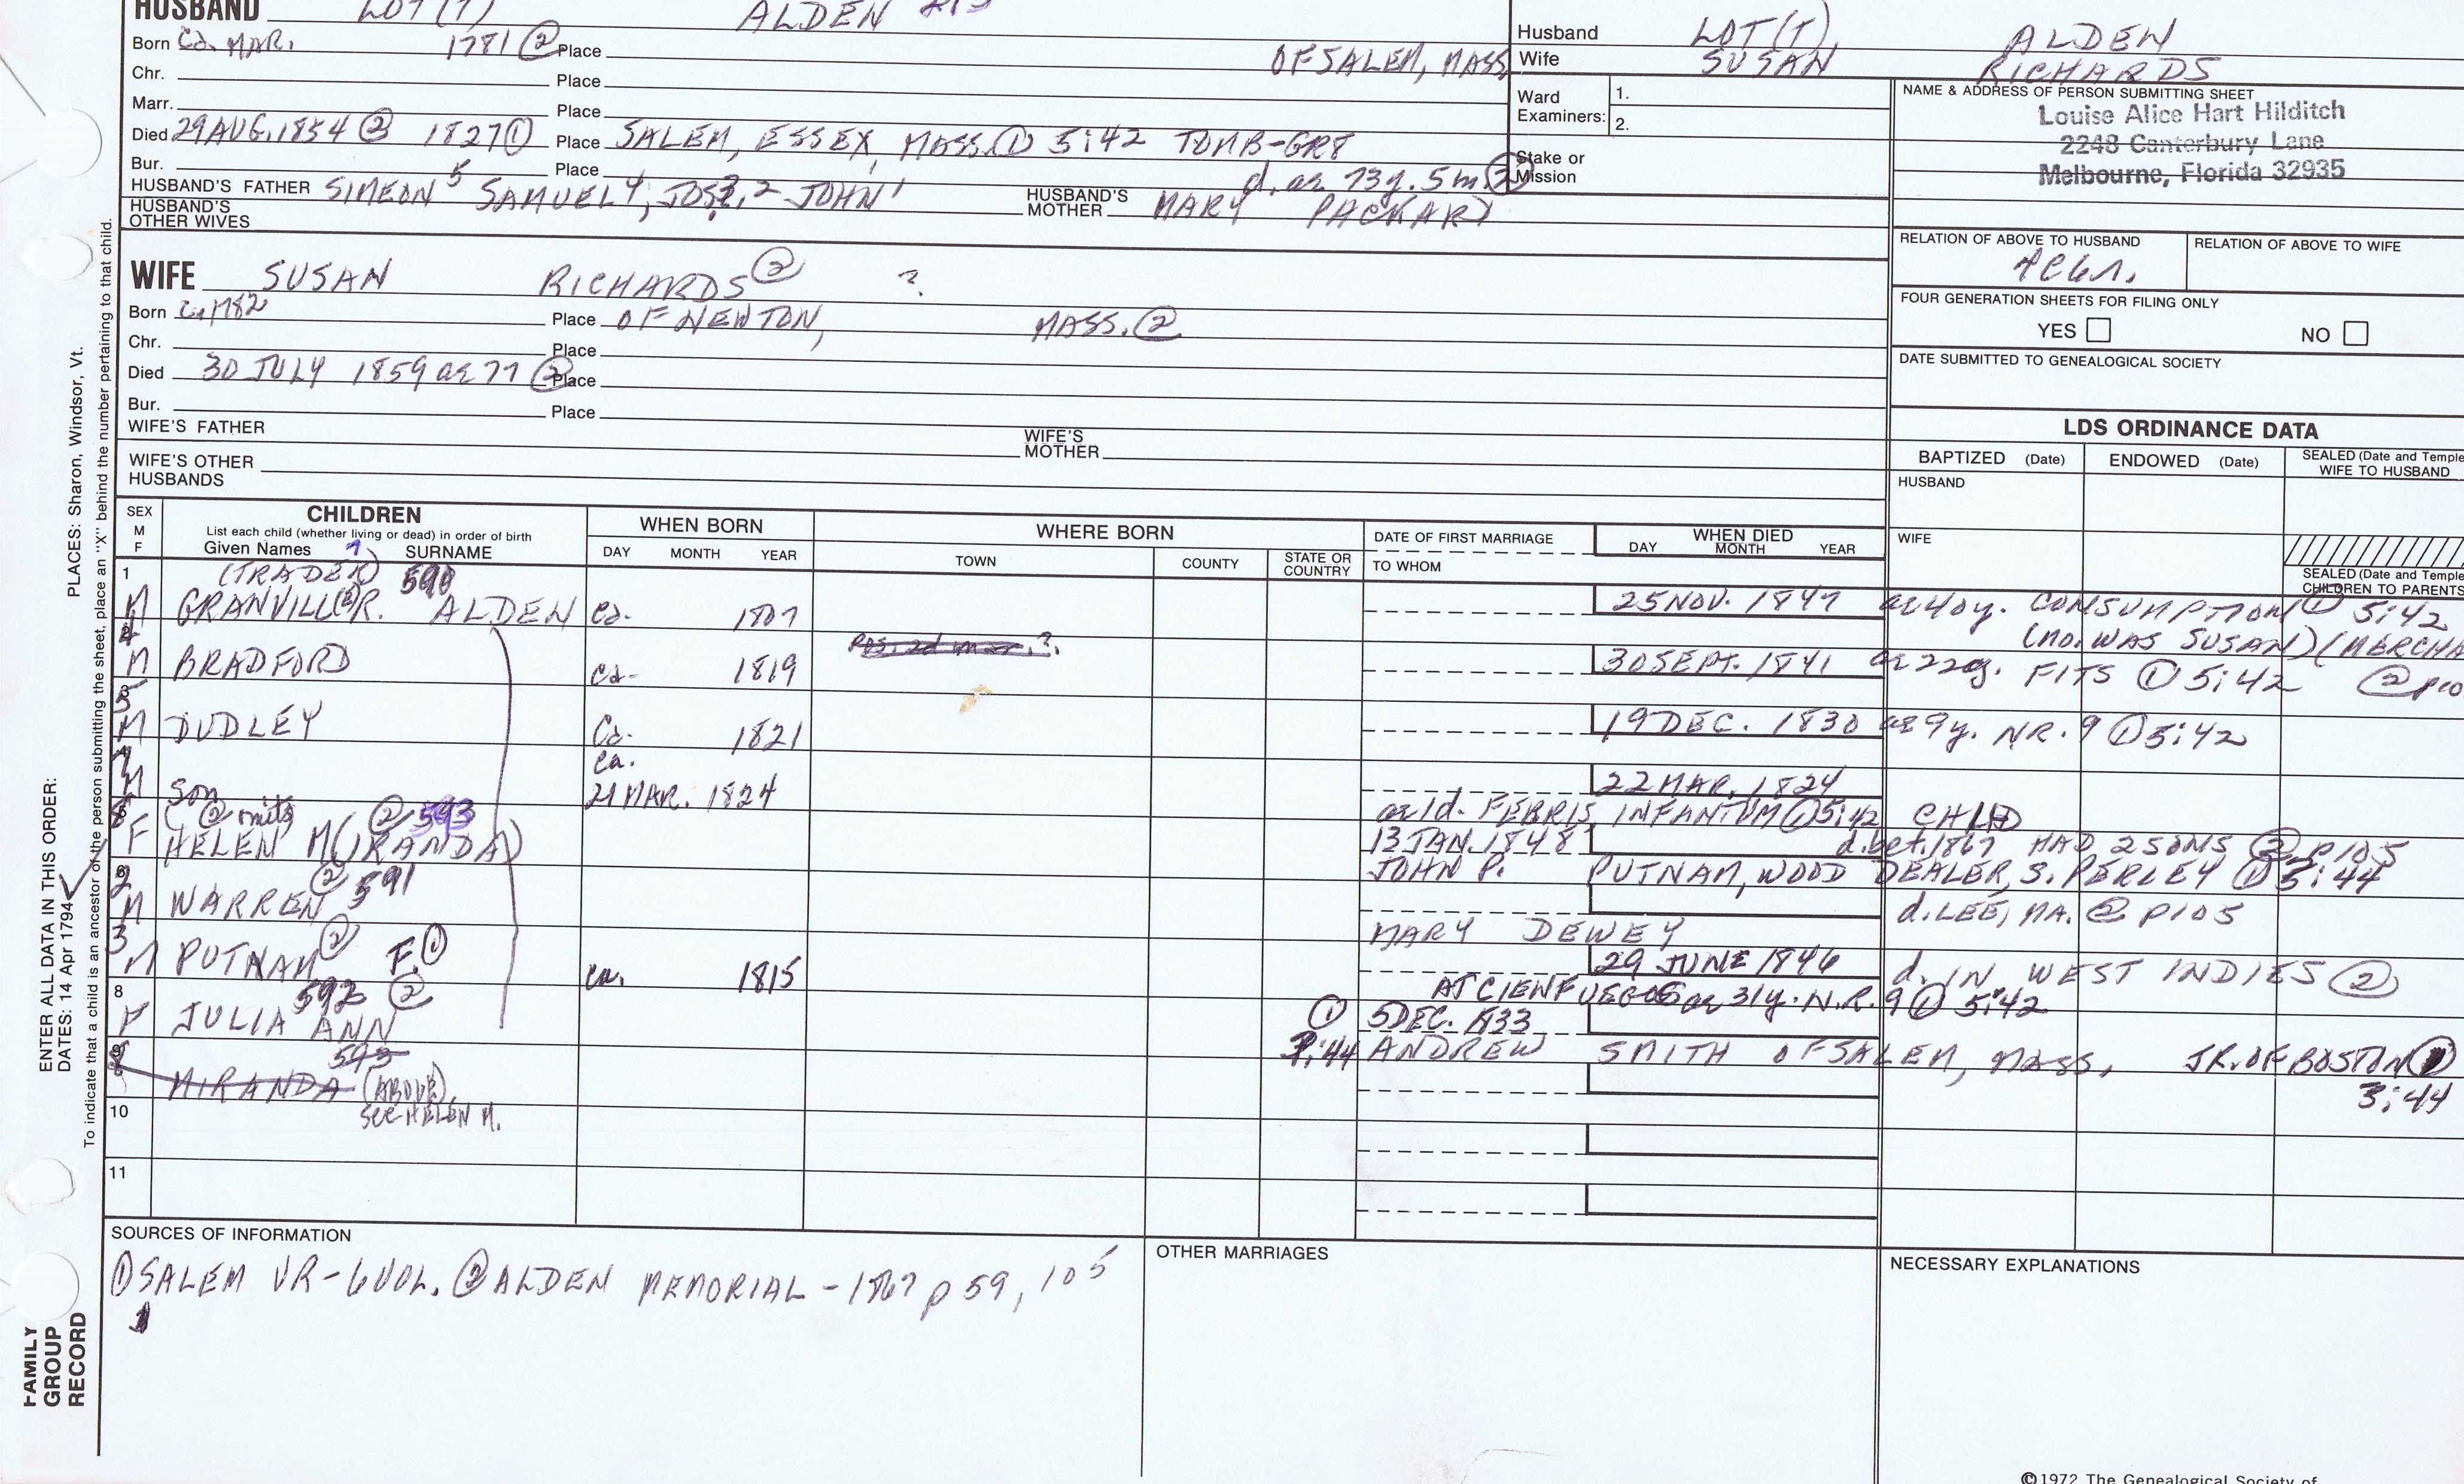 HUSBAND LOT(T) ALDEN
Born Ca. MAR. 1781 ② Place OF SALEM, MASS
Chr. Place
Marr. Place
Died 29 AUG. 1854 ② 1827 ① Place SALEM, ESSEX, MASS. ① 5:42 TOMB-GR8
Bur. Place d. ae 73y. 5m ②
HUSBAND'S FATHER SIMEON 5 SAMUEL 4, JOS 3, 2 JOHN 1 HUSBAND'S MOTHER MARY PACKARD
HUSBAND'S OTHER WIVES
Husband LOT(T) ALDEN
Wife SUSAN RICHARDS
Ward Examiners: 1.
2.
Stake or Mission
NAME & ADDRESS OF PERSON SUBMITTING SHEET
Louise Alice Hart Hilditch
2248 Canterbury Lane
Melbourne, Florida 32935
RELATION OF ABOVE TO HUSBAND RELATION OF ABOVE TO WIFE
FOUR GENERATION SHEETS FOR FILING ONLY
YES NO
DATE SUBMITTED TO GENEALOGICAL SOCIETY
WIFE SUSAN RICHARDS ② ?
Born Ca 1782 Place OF NEWTON, MASS. ②
Chr. Place
Died 30 JULY 1859 ae 77 ② Place
Bur. Place
WIFE'S FATHER WIFE'S MOTHER
WIFE'S OTHER HUSBANDS
LDS ORDINANCE DATA
BAPTIZED (Date) ENDOWED (Date) SEALED (Date and Temple
WIFE TO HUSBAND
HUSBAND
WIFE
SEALED (Date and Temple
CHILDREN TO PARENTS
SEX M F
CHILDREN
List each child (whether living or dead) in order of birth
Given Names SURNAME
WHEN BORN
DAY MONTH YEAR
WHERE BORN
TOWN COUNTY STATE OR COUNTRY
DATE OF FIRST MARRIAGE
TO WHOM
WHEN DIED
DAY MONTH YEAR
1 (TRADER) 590
M GRANVILL ② R. ALDEN Ca. 1807 25 NOV. 1847 ae 40y. CONSUMPTION ① 5:42
(mo. WAS SUSAN) (MERCHA
4 M BRADFORD Ca. 1819 30 SEPT. 1841 ae 22y. FITS ① 5:42 ② p10
5 M DUDLEY Ca. 1821 19 DEC. 1830 ae 9y. NR. 9 ① 5:42
M Son ca. 21 MAR. 1824 22 MAR. 1824
ae 1d. FEBRIS INFANTUM ① 5:42 CHILD
② 593
F HELEN M(IRANDA) 13 JAN. 1848 d. bet. 1867 HAD 2 SONS ② p105
JOHN P. PUTNAM, WOOD DEALER, S. PERLEY ① 3:44
2 M WARREN ② 591 d. LEE, MA. ② p105
MARY DEWEY
3 M PUTNAM ② F. ① ca. 1815 29 JUNE 1846 d. IN WEST INDIES ②
592 ② AT CIENFUEGOS ae 31y. N.R. 9 ① 5:42
8 F JULIA ANN ① 3:44 5 DEC. 1833
ANDREW SMITH OF SALEM, MASS, JR. OF BOSTON ①
3:44
593
MIRANDA (ABOVE)
see HELEN M.
10
11
SOURCES OF INFORMATION
① SALEM VR-6 VOL. ② ALDEN MEMORIAL - 1867 p 59, 105
OTHER MARRIAGES
NECESSARY EXPLANATIONS
©1972 The Genealogical Society of
FAMILY GROUP RECORD
ENTER ALL DATA IN THIS ORDER:
DATES: 14 Apr 1794 PLACES: Sharon, Windsor, Vt.
To indicate that a child is an ancestor of the person submitting the sheet, place an "X" behind the number pertaining to that child.